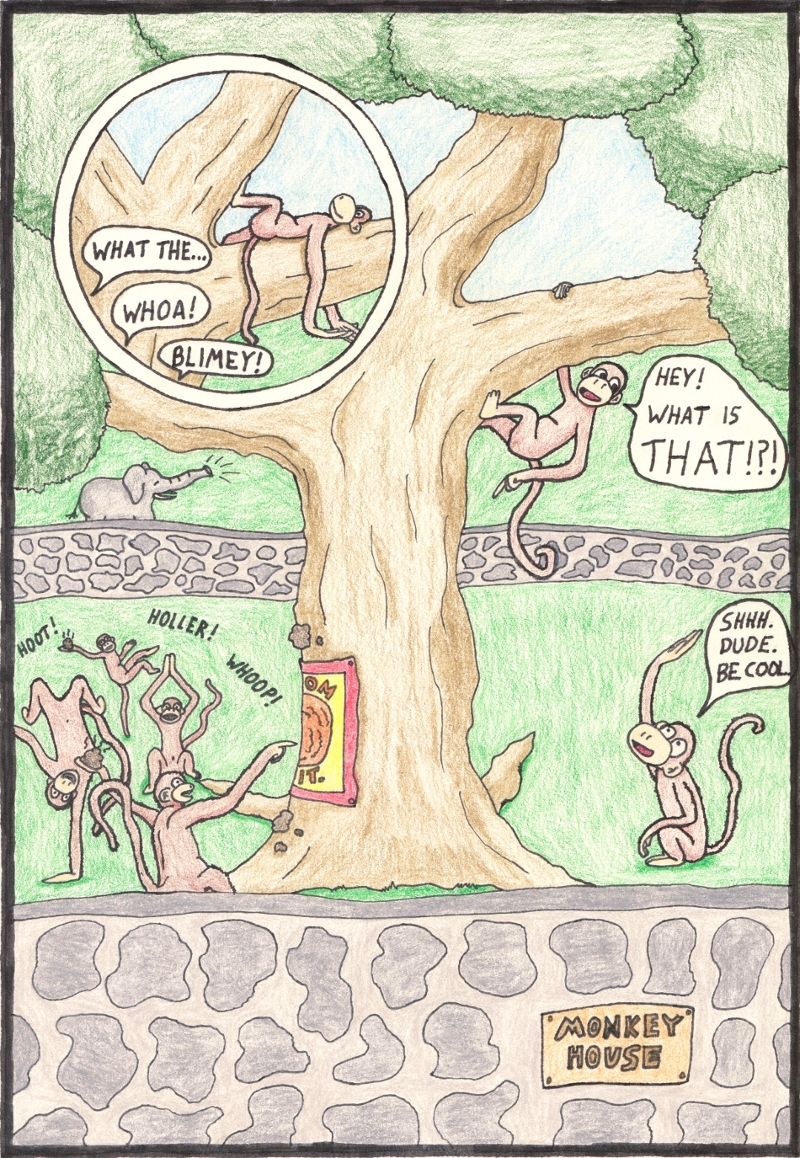 WHAT THE...
WHOA!
BLIMEY!
HEY!
WHAT IS
THAT!?!
HOOT!
HOLLER!
WHOOP!
SHHH.
DUDE.
BE COOL.
OM
IT.
MONKEY
HOUSE